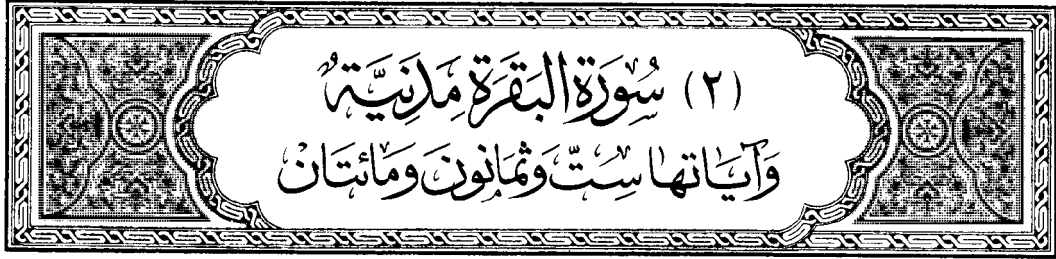 (٢) سُورَةُ البَقَرَةِ مَدَنِيَّةٌ
وَآيَاتهَا سِتٌّ وَثَمَانُونَ وَمَائتَانْ